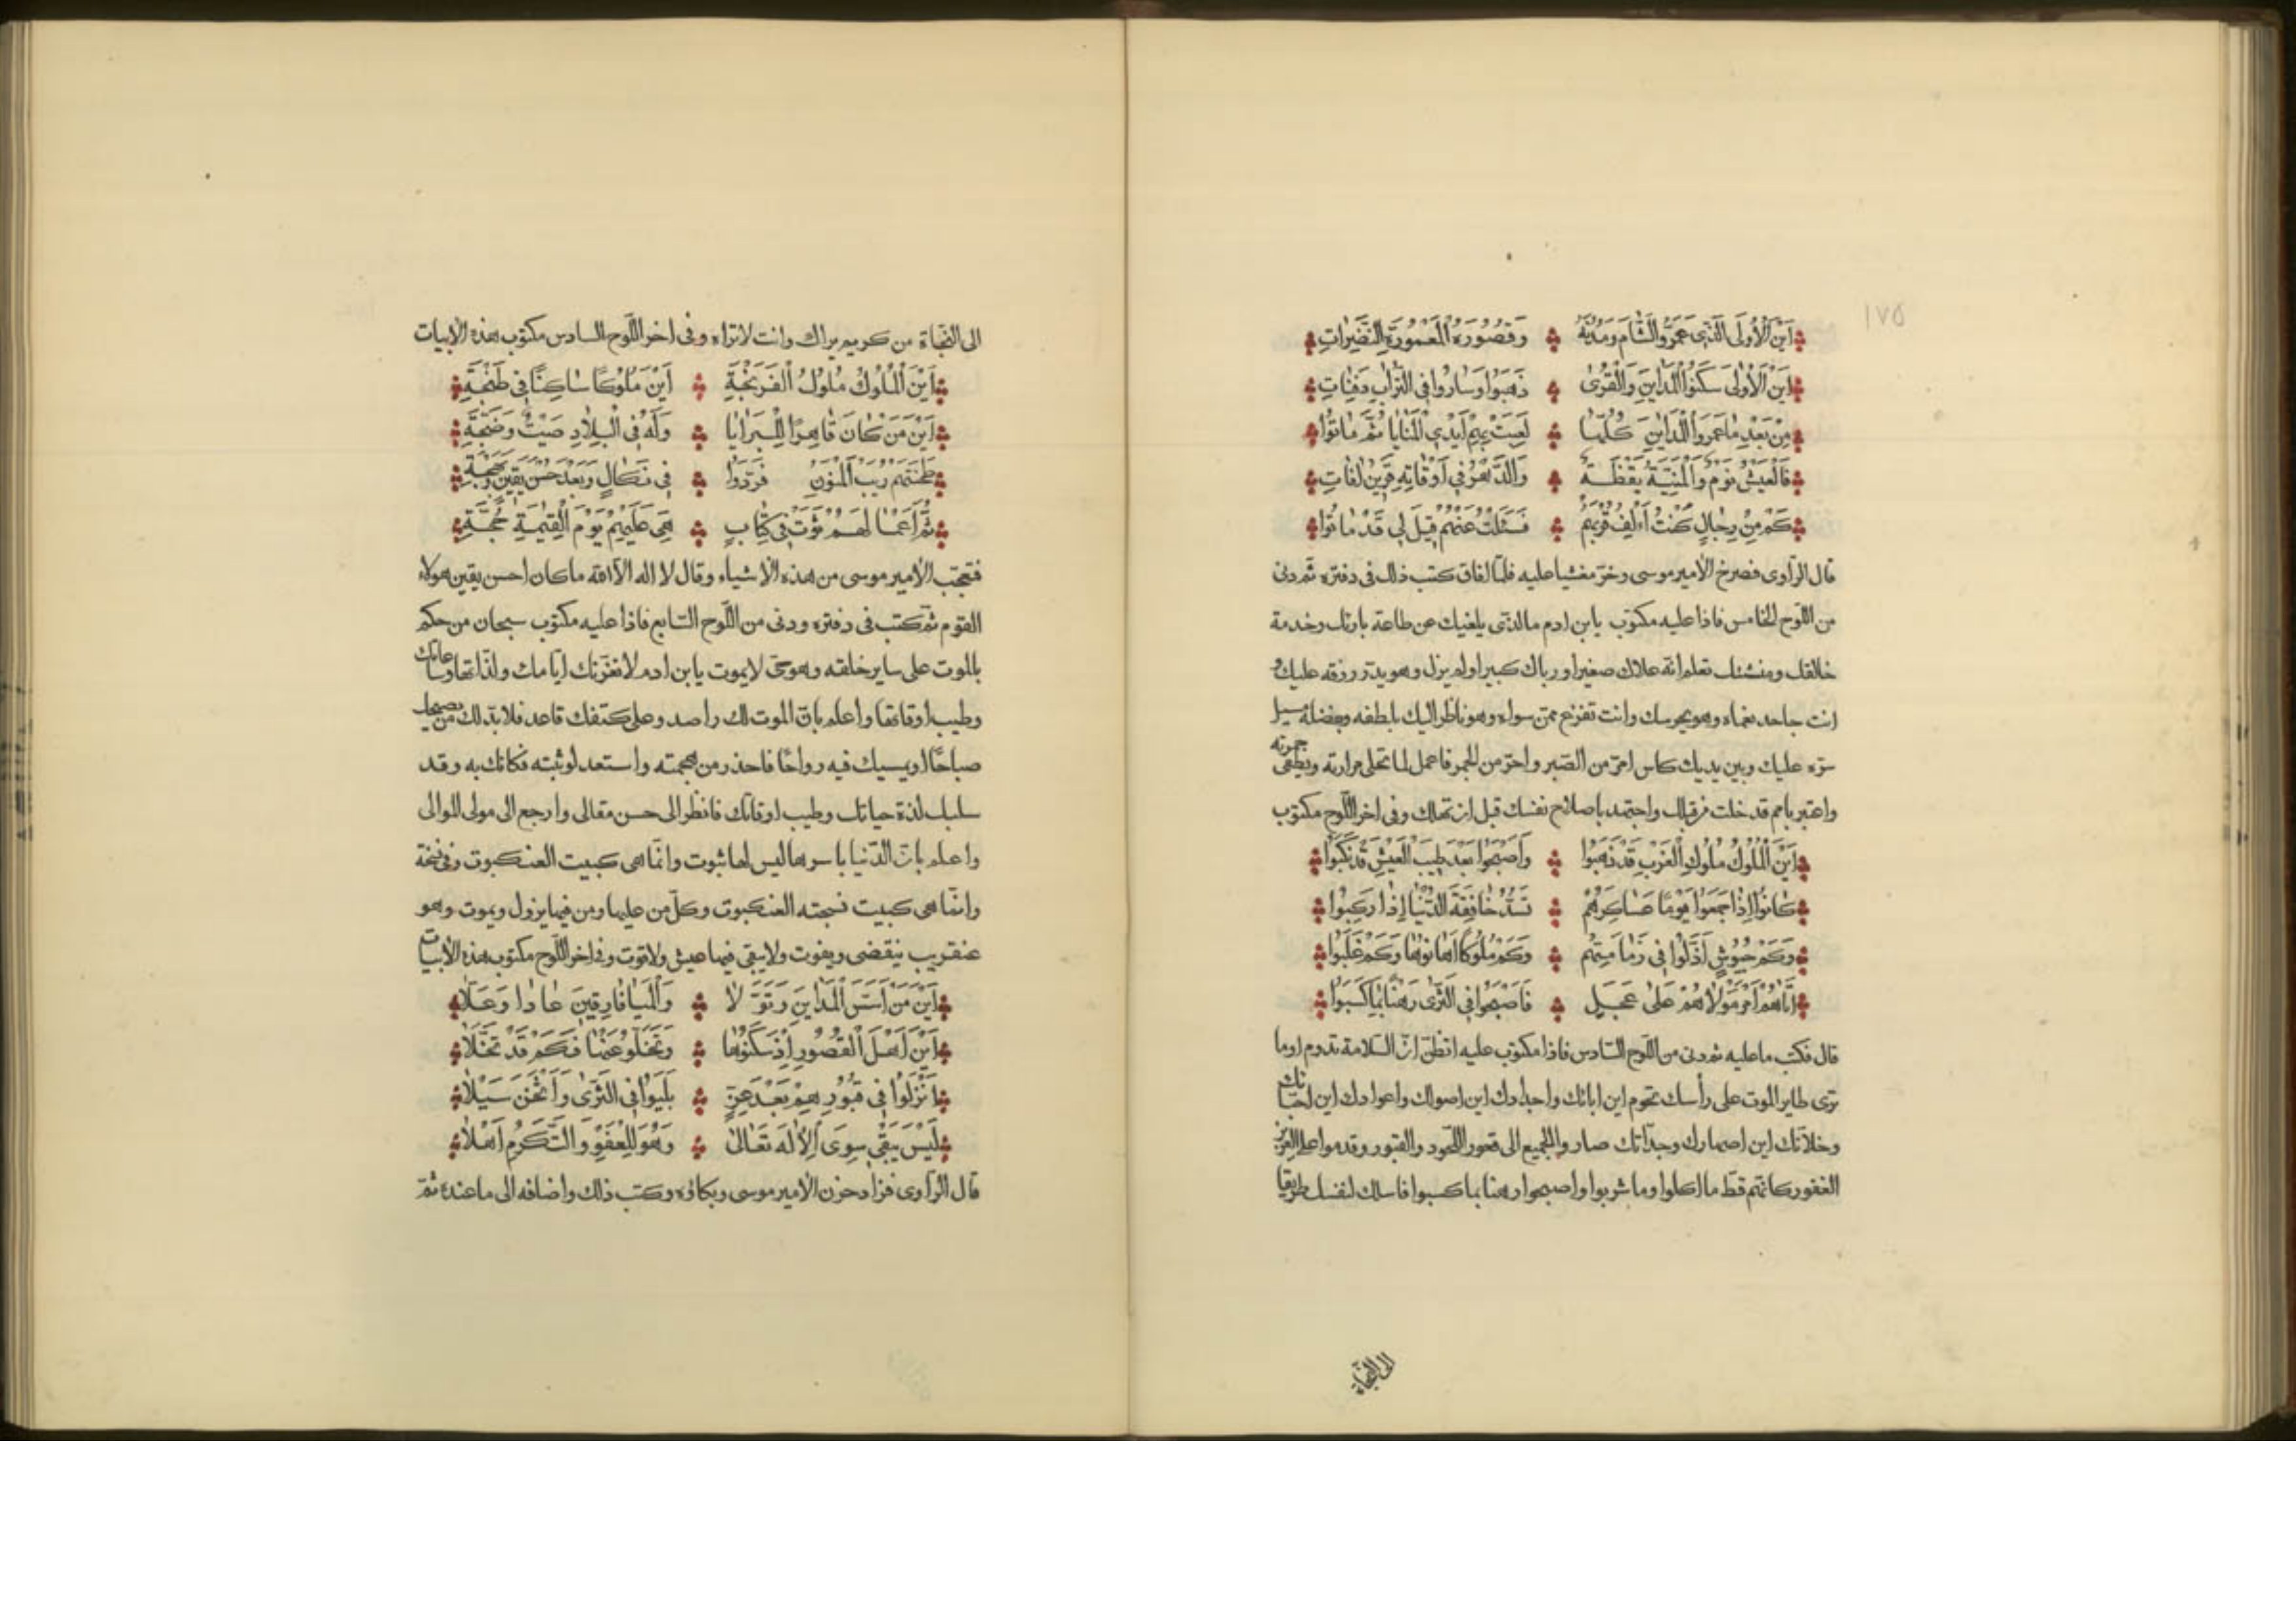 ١٧٥
اَيْنَ الْاُولَى الَّذِى عَمَرُوا الشَّام وَمُدْنَهُ وَقُصُورَهُ الْمَعْمُورَةِ النَّضِيرَاتِ
اَيْنَ الْاُولٰى سَكَنُوا الْمَدَايِنَ وَالْقُرٰى ذَهَبُوا وَسَارُوا فِى التُّرَابِ دَفِنَاتِ
مِنْ بَعْدِ مَا عَمَرُوا الْمَدَايِنَ كُلَّهَا لَعِبَتْ بِهِمْ اَيْدِى الْمَنَايَا ثُمَّ مَاتُوا
فَالْعَيْشُ نَوْمٌ وَالْمَنِيَّةُ يَقْظَةٌ وَالدَّهْرُ فِى اَوْقَاتِهِ قَرِينُ اٰفَاتِ
كَمْ مِنْ رِجَالٍ كُنْتُ اٰلِفُ قُرْبَهُمْ فَسَئَلْتُ عَنْهُمْ قِيلَ لِى قَدْ مَاتُوا
قال الراوى فصرخ الامير موسى وخر مغشيا عليه فلما افاق كتب ذلك فى دفتره ثم دنى
من اللوح الخامس فاذا عليه مكتوب يا بن ادم ما الذى يلغيك عن طاعة بارئك وخدمة
خالقك ومنشئك تعلم انه علاك صغيرا ورباك كبيرا ولم يزل وهو يدر رزقه عليك و
انت جاحد نعماه وهو يحرسك وانت تفزع ممن سواه وهو ناظر اليك بلطفه وبفضله سبل
ستره عليك وبين يديك كاس امر من الصبر واحر من الجمر فاعمل لما تحلى مرارته ويطفى جمرته
واعتبر بامم قد خلت من قبلك واجتهد باصلاح نفسك قبل ان تهلك وفى اخر اللوح مكتوب
اَيْنَ الْمُلُوكُ مُلُوكُ الْعَرَبِ قَدْ ذَهَبُوا وَاَصْبَحُوا بَعْدَ طِيبَ الْعَيْشِ قَدْ نُكِبُوا
كَانُوا اِذَا جَمَعُوا يَوْمًا عَسَاكِرَهُمْ تَسُدُّ خَافِقَةَ الدُّنْيَا اِذَا رَكِبُوا
وَكَمْ جُيُوشٍ اَذَلُّوا فِى زَمَانِهِمْ وَكَمْ مُلُوكًا اَهَانُوهَا وَكَمْ غَلَبُوا
اَتَاهُمُ اَمْرُ مَوْلَاهُمْ عَلٰى عَجَلٍ فَاَصْبَحُوا فِى الثَّرٰى رَهْنًا بِمَا كَسَبُوا
قال فكتب ما عليه ثم دنى من اللوح السادس فاذا مكتوب عليه اتظن ان السلامة تدوم اوما
ترى طاير الموت على رأسك تحوم اين ابائك واجدادك اين اصولك واعوادك اين احبائك
وخلانك اين اصهارك وجداتك صاروا الجميع الى قعور اللحود والقبور وقدموا على العزيز
الغفور كانهم قط ما اكلوا وما شربوا واصبحوا رهنا بما كسبوا فاسلك لنفسك طريقا
الى النجاة
الى النجاة من كريم يراك وانت لا تراه وفى اخر اللوح السادس مكتوب هذه الابيات
اَيْنَ الْمُلُوكُ مُلُوكُ الْفَرَنْجَةِ اَيْنَ مَلُوكًا سَاكِنًا فِى طَنْجَةِ
اَيْنَ مَنْ كَانَ قَاهِرًا لِلْبَرَايَا وَلَهُ فِى الْبِلَادِ صَيْتٌ وَضَجَّةِ
طَحَنَتْهُمْ رَيْبَ الْمَنُونِ فَرُدُّوا فِى نَكَالٍ وَبَعْدَ حُسْنَ يَقِينٍ
ثُمَّ اَعْمَالَهُمْ ثَوَتْ فِى كِتَابٍ هِىَ عَلَيْهِمْ يَوْمَ الْقِيٰمَةِ حُجَّةِ
فتعجب الامير موسى من هذه الاشياء وقال لا اله الا الله ما كان احسن يقين هولاء
القوم ثم كتب فى دفتره ودنى من اللوح السابع فاذا عليه مكتوب سبحان من حكم
بالموت على ساير خلقه وهو حى لا يموت يا بن ادم لا تغرنك ايامك ولذاتها وساعاتك
وطيب اوقاتها واعلم بان الموت لك راصد وعلى كتفك قاعد فلا بد لك من يصبحك
صباحًا او يمسيك فيه رواحًا فاحذر من هجمته واستعد لوثبته فكانك به وقد
سلبك لذة حياتك وطيب اوقاتك فانظر الى حسن مقالى وارجع الى مولى الموالى
واعلم بان الدنيا باسرها ليس لها ثبوت وانما هى كبيت العنكبوت وفى نسخة
وانما هى كبيت نسجته العنكبوت وكل من عليها ومن فيها يزول ويموت وهو
عنقريب ينقضى ويفوت ولا يبقى فيها عيش ولا قوت وفى اخر اللوح مكتوب هذه الابيات
اَيْنَ مَنْ اَسَّسَ الْمَدَايِنَ وَتَوَلَّا وَالْمَيَافَارِقِينَ عَادًا وَعَلَا
اَيْنَ اَهْلَ الْقُصُورِ اِذْ سَكَنُوهَا وَتَخَلَّوْ عَنْهَا فَكَمْ قَدْ تَخَلَّا
اُنْزِلُوا فِى قُبُورِهِمْ بَعْدَ عِزٍّ بَلِيُوا فِى الثَّرٰى سَيْلًا
لَيْسَ يَبْقٰى سِوَى الْاِلٰهَ تَعَالٰى وَهُوَ لِلْعَفْوِ وَالتَّكَرُّمِ اَهْلَا
قال الراوى فزاد حزن الامير موسى وبكاؤه وكتب ذلك واضافه الى ما عنده ثم